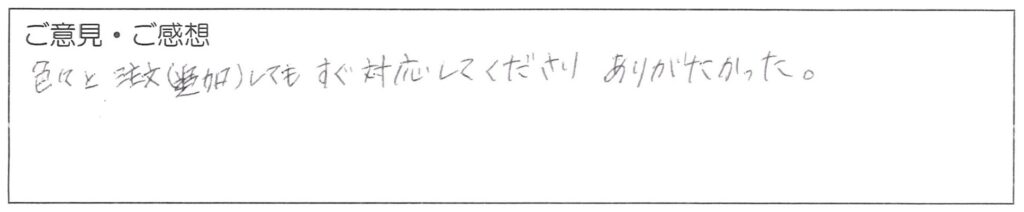 ご意見・ご感想
色々と 注文(追加)しても すぐ対応してくださり ありがたかった。